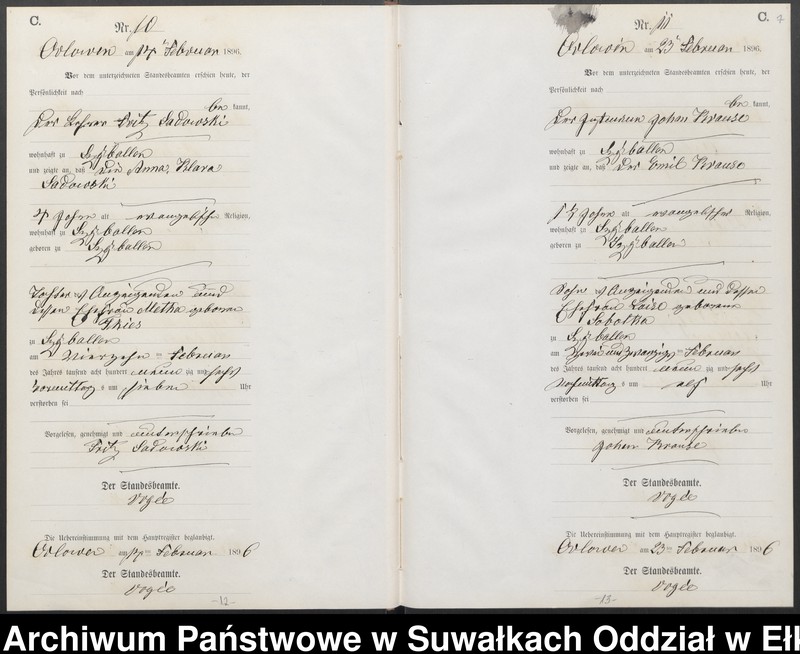 C.
Nr. 10
Orlowen am 14ᵗ Februar 1896.
Vor dem unterzeichneten Standesbeamten erschien heute, der
Persönlichkeit nach
be kannt,
der Lehrer Fritz Sadowski
wohnhaft zu Szÿballen
und zeigte an, daß die Anna, Klara
Sadowski
4 Jahre alt evangelischer Religion,
wohnhaft zu Szÿballen
geboren zu Szÿballen
Tochter des Anzeigenden und
dessen Ehefrau Metha geborene
Thies
zu Szÿballen
am Vierzehn ten Februar
des Jahres tausend acht hundert neun zig und sechs
Vormittag s um sieben Uhr
verstorben sei
Vorgelesen, genehmigt und unterschrieben
Fritz Sadowski
Der Standesbeamte.
Vogée
Die Uebereinstimmung mit dem Hauptregister beglaubigt.
Orlowen am 14 ten Februar 1896
Der Standesbeamte.
Vogée
-12-
C.
Nr. 11
Orlowen am 23ᵗ Februar 1896.
Vor dem unterzeichneten Standesbeamten erschien heute, der
Persönlichkeit nach
be kannt,
Der Instmann Johan Krause
wohnhaft zu Szÿballen
und zeigte an, daß der Emil Krause
1½ Jahre alt evangelischer Religion,
wohnhaft zu Szÿballen
geboren zu Szÿballen
Sohn des Anzeigenden und dessen
Ehefrau Luise geborene
Sobottka
zu Szÿballen
am Zwei und zwanzig ten Februar
des Jahres tausend acht hundert neun zig und sechs
Nachmittag s um elf Uhr
verstorben sei
Vorgelesen, genehmigt und unterschrieben
Johan Krause
Der Standesbeamte.
Vogée
Die Uebereinstimmung mit dem Hauptregister beglaubigt.
Orlowen am 23 ten Februar 1896
Der Standesbeamte.
Vogée
-13-
Archiwum Państwowe w Suwałkach Oddział w Ełk